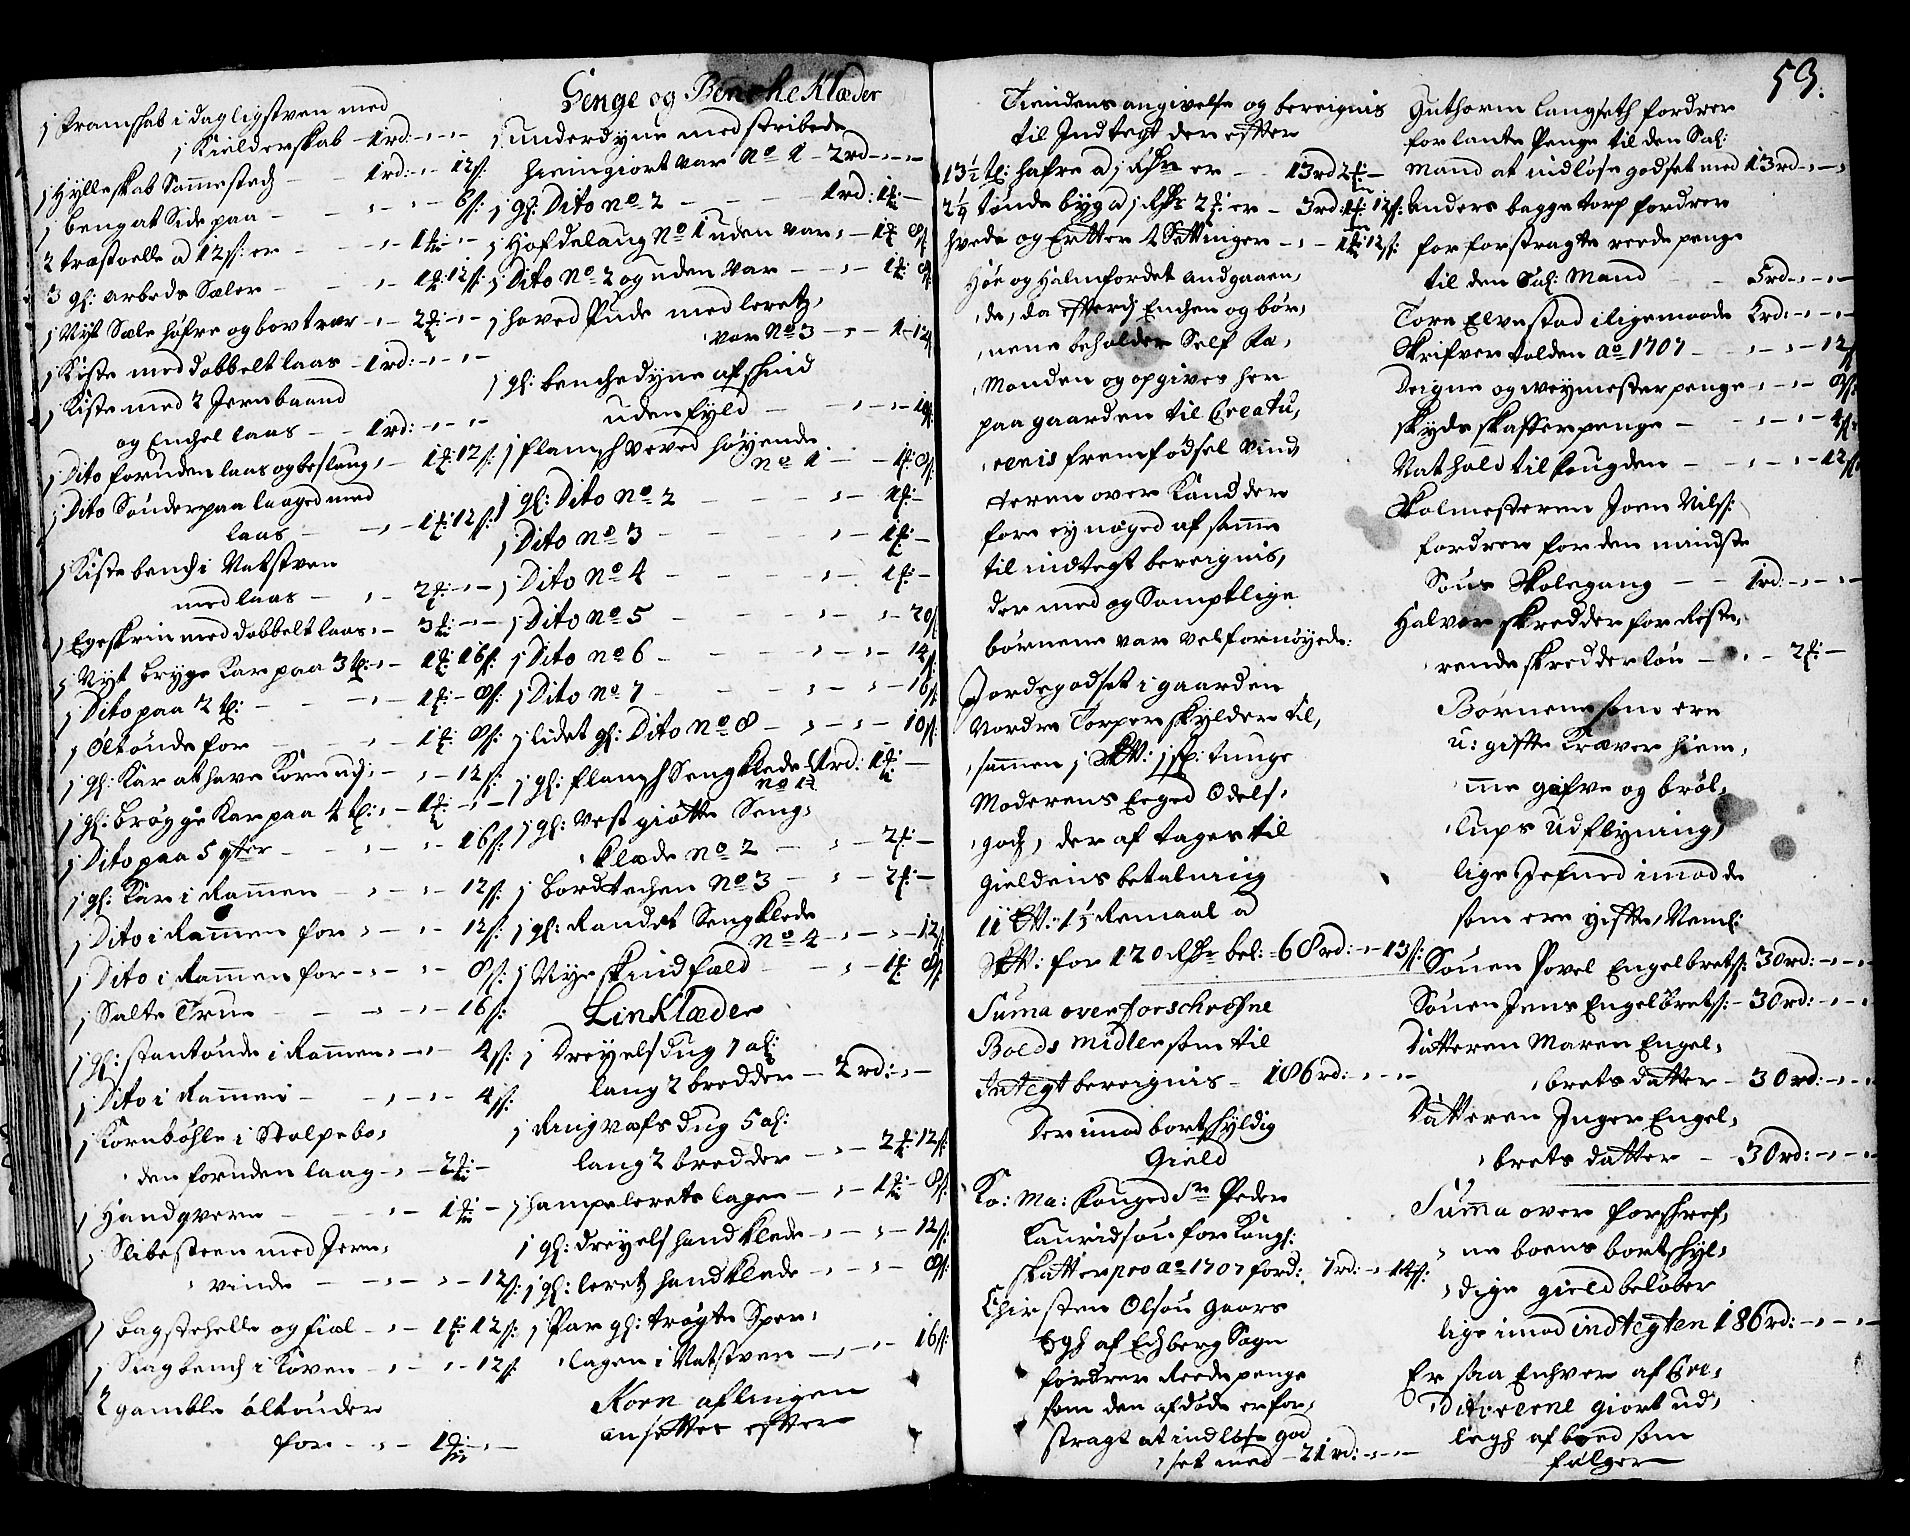 1 framskab i dagligstuen med
1 Kielderskab - 1rd: - - -
1 Hylleskab Sammestedz - - 1rd: - 12s:
1 benk at Side paa - - - - 6s:
2 træstoelle a 12s: er - - - 1 - -
3 gl: arbeds Sæler - - - 1 12s:
1 Nyt Sæle høfre og bovtrær - - 2 - -
1 Kiste med dobbelt laas - 1rd: - - -
1 Kiste med 2 Jernbaand
og Enchel laas - - 1rd: - - -
1 Dito foruden laas og beslaug, - 1 12s:
1 Dito Sønderpaa laaged med
laas - - - 1 12s:
1 Kiste bench i Natstuen
med laas - - 2 - -
1 Egeskrin med dobbelt laas, - 3 - -
1 Nyt bryge Kar paa 3 tr: - - 1 16s:
1 Dito paa 2 tr: - - - - 1 - 8s:
1 Øltønde for - - - 1 8s:
1 gl: Kar at have Korn udj - - - 12s:
1 gl: brøgge Kar paa 4 tr: - - 1 - -
1 Dito paa 5 qter - - - - 16s:
1 gl: Kar i Ramen - - - - 12s:
1 Dito i Ramen for - - - - 12s:
1 Dito i Ramen for - - - - 8s:
1 Salte True - - - - 16s:
1 gl: stantønde i Ramen - - - 4s:
1 Dito i Ramen - - - - 4s:
1 Kornbøhle i Stolpebo,
den foruden laag - - - 2 -
1 Handqvern - - - 1 -
1 Slibesteen med Jern,
vinde - - - - 12s:
1 bagstehelle og fiæl - - 1 12s:
1 Slagbench i Koven - - - 12s:
2 gamble øltønder
for - - - 1 - -
Senge og Benche Klæder
1 underdyne med stribede
hiemgiort var No 1 - 2rd - - -
1 gl: Dito no 2 - - - 1rd: 1 -
1 Hofdelaug No 1 uden var, - 1 8s
1 Dito No 2 og uden var - - 1 8s
1 hoved Pude med leretz,
var No 3 - - 1 - 12s
1 gl: benchedyne af skind
uden fyld - - - 18s:
1 flamsk veved høyende
no 1 - - 1 8s:
1 gl: Dito no 2 - - - 1 -
1 Dito no 3 - - - - 1 -
1 Dito no 4 - - - - 1 -
1 Dito no 5 - - - - 20s
1 Dito no 6 - - - - 14s
1 Dito no 7 - - - - 16s
1 lidet gl: Dito no 8 - - - 10s:
1 gl: flamsk Sengklæde 1rd: 1 -
no 1
1 gl: vestgiøtte Seng,
klæde no 2 - - 2 -
1 bordtechen No 3 - - 2 -
1 gl: Randet Sengklæde
no 4 - - - 12s
1 Nye skindfæld - - - 1 8s
LinKlæder
1 Dreyels dug 7 al:
lang 2 bredder - 2rd: - -
1 Ringvæfs dug 5 al:
lang 2 bredder - - 2 12s:
1 hampelerets lagen - - 1 8s:
1 gl: dreyels handklæde - - - 12s:
1 gl: leretz handklæde - - - 8s:
1 Par gl: trøgte Spar,
lagen i Natstuen - - - 16s:
Korn aflingen
ansettes efter
53.
Tiendens angivelse og bereignis
til Indtegt der efter
13½ tr: hafre a 1 Rdr er - - 13rd 2 -
2¼ tønde byg a 1 Rdr 2 er - 3rd 1 12s:
hvede og Ertter 2 Settinger - - 1 12s:
Høe og Halmfordet andgaaen,
de, da efterdj Enchen og bør,
nene beholder Self Ca,
Manden og opgives her
paa gaarden til Creatu,
renis fremfødsel Vind
teren over Kand der
fore ey noged af same
til indtegt bereignis,
der med og Samptlige
børnene var vel fornøyede:
Jordegodset i gaarden
Nordre Torper skylder til,
sammen 1 Skt: 1 sp: tunge
Moderens Eeged Odels,
godz, der af tages til
Gieldens betalning
11 Skt: 1½ Remaal a
Skt: for 120 Rdr bel: 68rd: - 13s:
Suma over forschrefne
Boeds midler som til
Integt bereignis - 186rd: - - -
Der imod bortskyldig
Gield
Ko: Ma: fouged Sr Peder
Lauridsøn for Kongl:
skatter pro ao 1707 ford: 7rd: - 14s:
Christen Olsøn Gaars
af Echberg Sogn
fordrer Reede penge
som den afdøde er for,
stragt at indløse god
set med - 21rd: - - -
Guthorm Langseth fordrer
for lante Penge til den Sal:
Mand at indløse godset med 13rd - - -
Anders baggetorp fordrer
for forstragte reede penge
til den Sal: Mand - - 5rd - - -
Tore Elvestad i ligemaade 2rd: - - -
Skrifver tolden ao 1707 - - - - 12s
Deigne og weymester penge - - - 8s
skyds skaffer penge - - - - 4s
Nathold til fougden - - - - 12s
Skolmesteren Joen Nilss:
fordrer for den mindste
Søns Skolegang - - 1rd: - - -
Halvor skredder for Reste,
rende skredderløn - - - 2 -
Børnene som ere
u: gifte Kræver hiem,
me gifve og bryl,
lups Udflyning,
lige Jefned imod de
som ere gifte, Neml:
Sønen Povel Engelbrets: 30rd: - - -
Sønen Jens Engelbrets: - 30rd: - - -
Datteren Maren Engel,
brets datter - 30rd: - - -
Datteren Inger Engel,
brets datter - 30rd: - - -
Summa over forskref,
ne boens bortskyl,
dige gield beløber
lige imod indtegten 186rd: - - -
Er saa Enhver af Cre,
ditorerne giort ud,
legh af boed som
følger